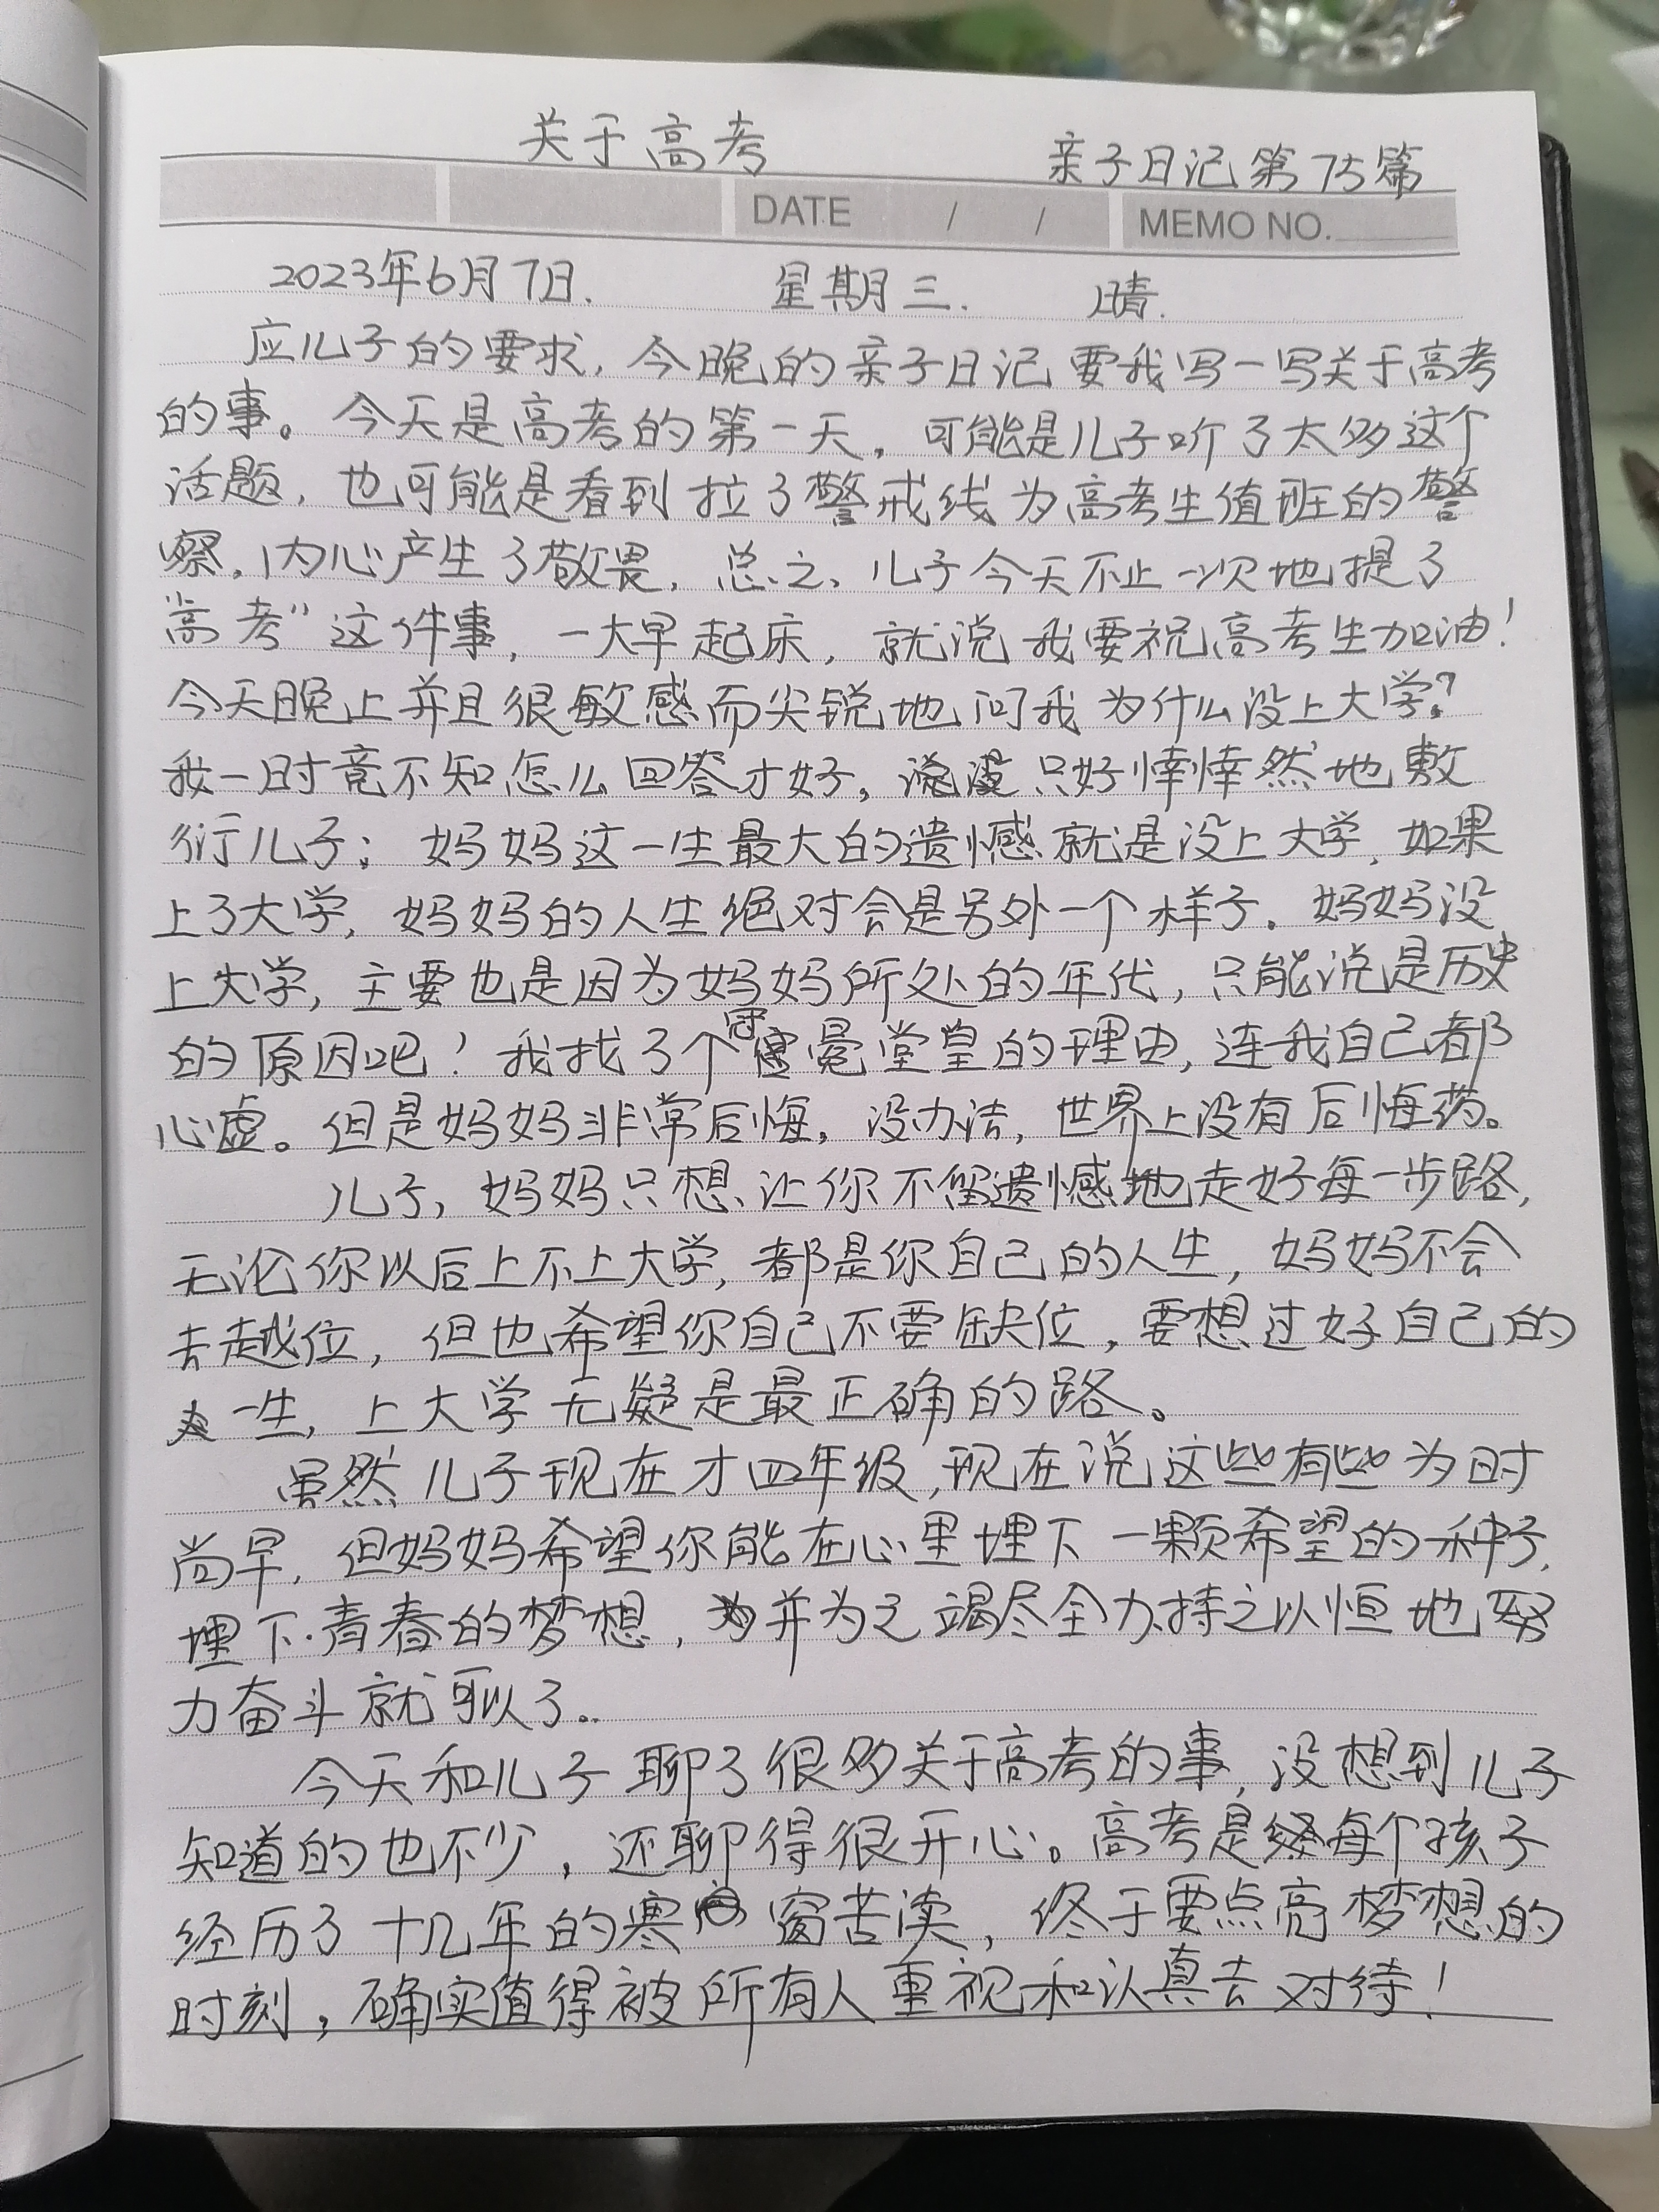 关于高考
亲子日记第75篇
DATE / /
MEMO NO.
2023年6月7日. 星期三. 晴.
应儿子的要求,今晚的亲子日记要我写一写关于高考
的事。今天是高考的第一天,可能是儿子听了太多这个
话题,也可能是看到拉了警戒线为高考生值班的警
察,内心产生了敬畏,总之、儿子今天不止一次地提了
“高考”这件事,一大早起床,就说我要祝高考生加油!
今天晚上并且很敏感而尖锐地问我为什么没上大学?
我一时竟不知怎么回答才好,只好悻悻然地敷
衍儿子:妈妈这一生最大的遗憾就是没上大学,如果
上了大学,妈妈的人生绝对会是另外一个样子.妈妈没
上大学,主要也是因为妈妈所处的年代,只能说是历史
的原因吧!我找了个冠冕堂皇的理由,连我自己都
心虚。但是妈妈非常后悔,没办法,世界上没有后悔药。
儿子,妈妈只想让你不留遗憾地走好每一步路,
无论你以后上不上大学,都是你自己的人生,妈妈不会
去越位,但也希望你自己不要缺位,要想过好自己的
一生,上大学无疑是最正确的路。
虽然儿子现在才四年级,现在说这些有些为时
尚早,但妈妈希望你能在心里埋下一颗希望的种子,
埋下青春的梦想,并为之竭尽全力持之以恒地努
力奋斗就可以了..
今天和儿子聊了很多关于高考的事,没想到儿子
知道的也不少,还聊得很开心。高考是每个孩子
经历了十几年的寒窗苦读,终于要点亮梦想的
时刻,确实值得被所有人重视和认真去对待!